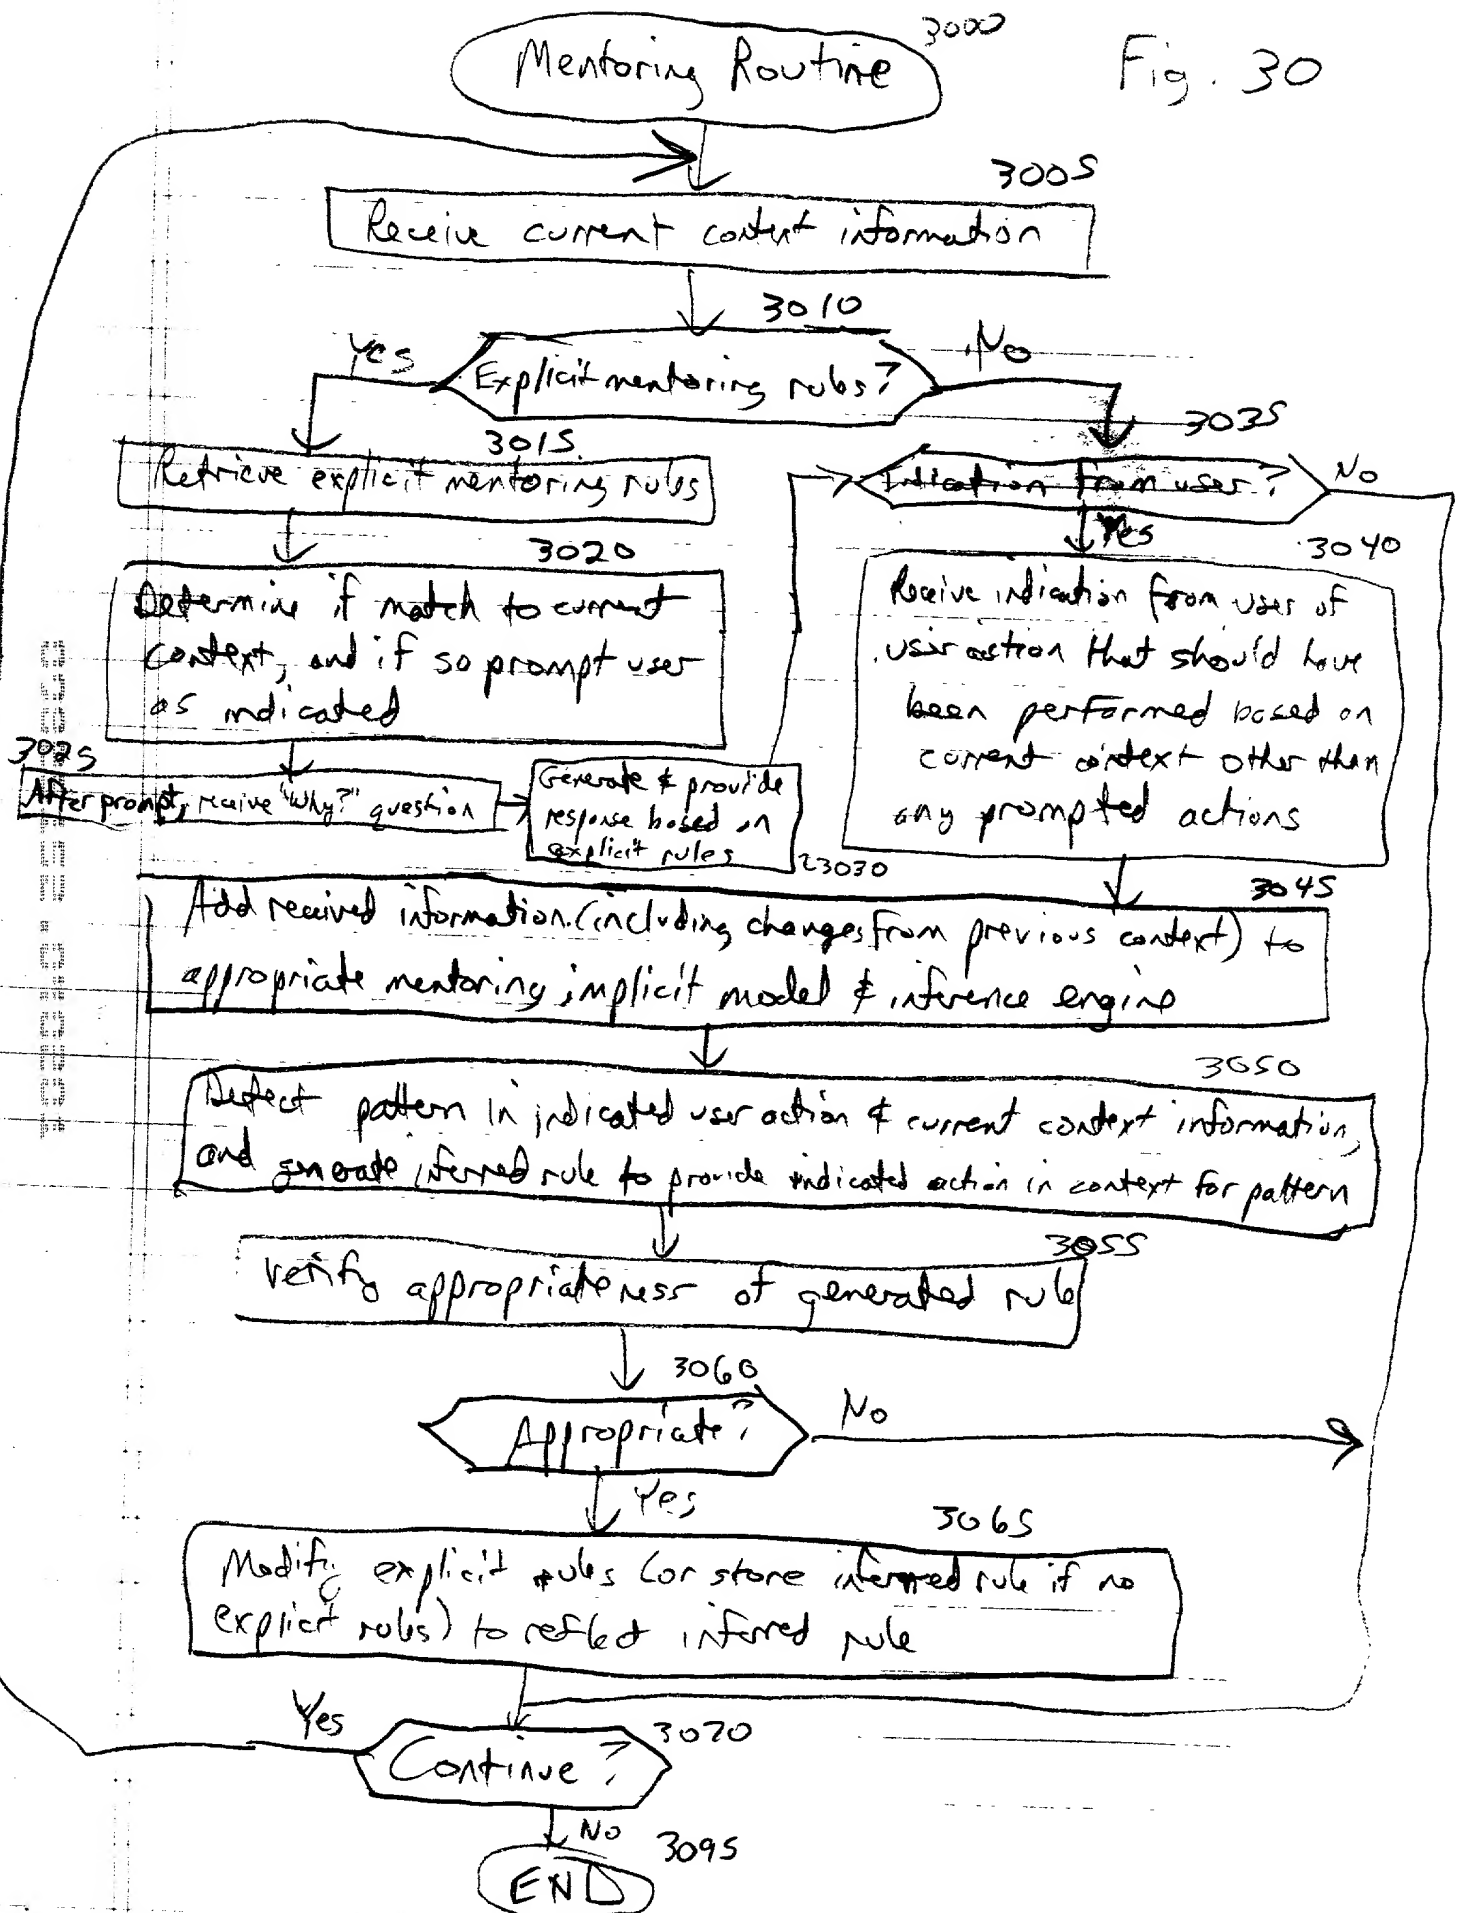 3000
Mentoring Routine
Fig. 30
3005
Receive current context information
3010
Yes
Explicit mentoring rules?
No
3015
Retrieve explicit mentoring rules
3035
Indication from user?
No
Yes
3020
Determine if match to current
context, and if so prompt user
as indicated
3040
Receive indication from user of
user action that should have
been performed based on
current context other than
any prompted actions
3025
After prompt, receive "Why?" question
Generate & provide
response based on
explicit rules
3030
3045
Add received information (including changes from previous context) to
appropriate mentoring implicit model & inference engine
3050
Detect pattern in indicated user action & current context information,
and generate inferred rule to provide indicated action in context for pattern
3055
Verify appropriateness of generated rule
3060
Appropriate?
No
Yes
3065
Modify explicit rules (or store inferred rule if no
explicit rules) to reflect inferred rule
Yes
3070
Continue?
No
3095
END